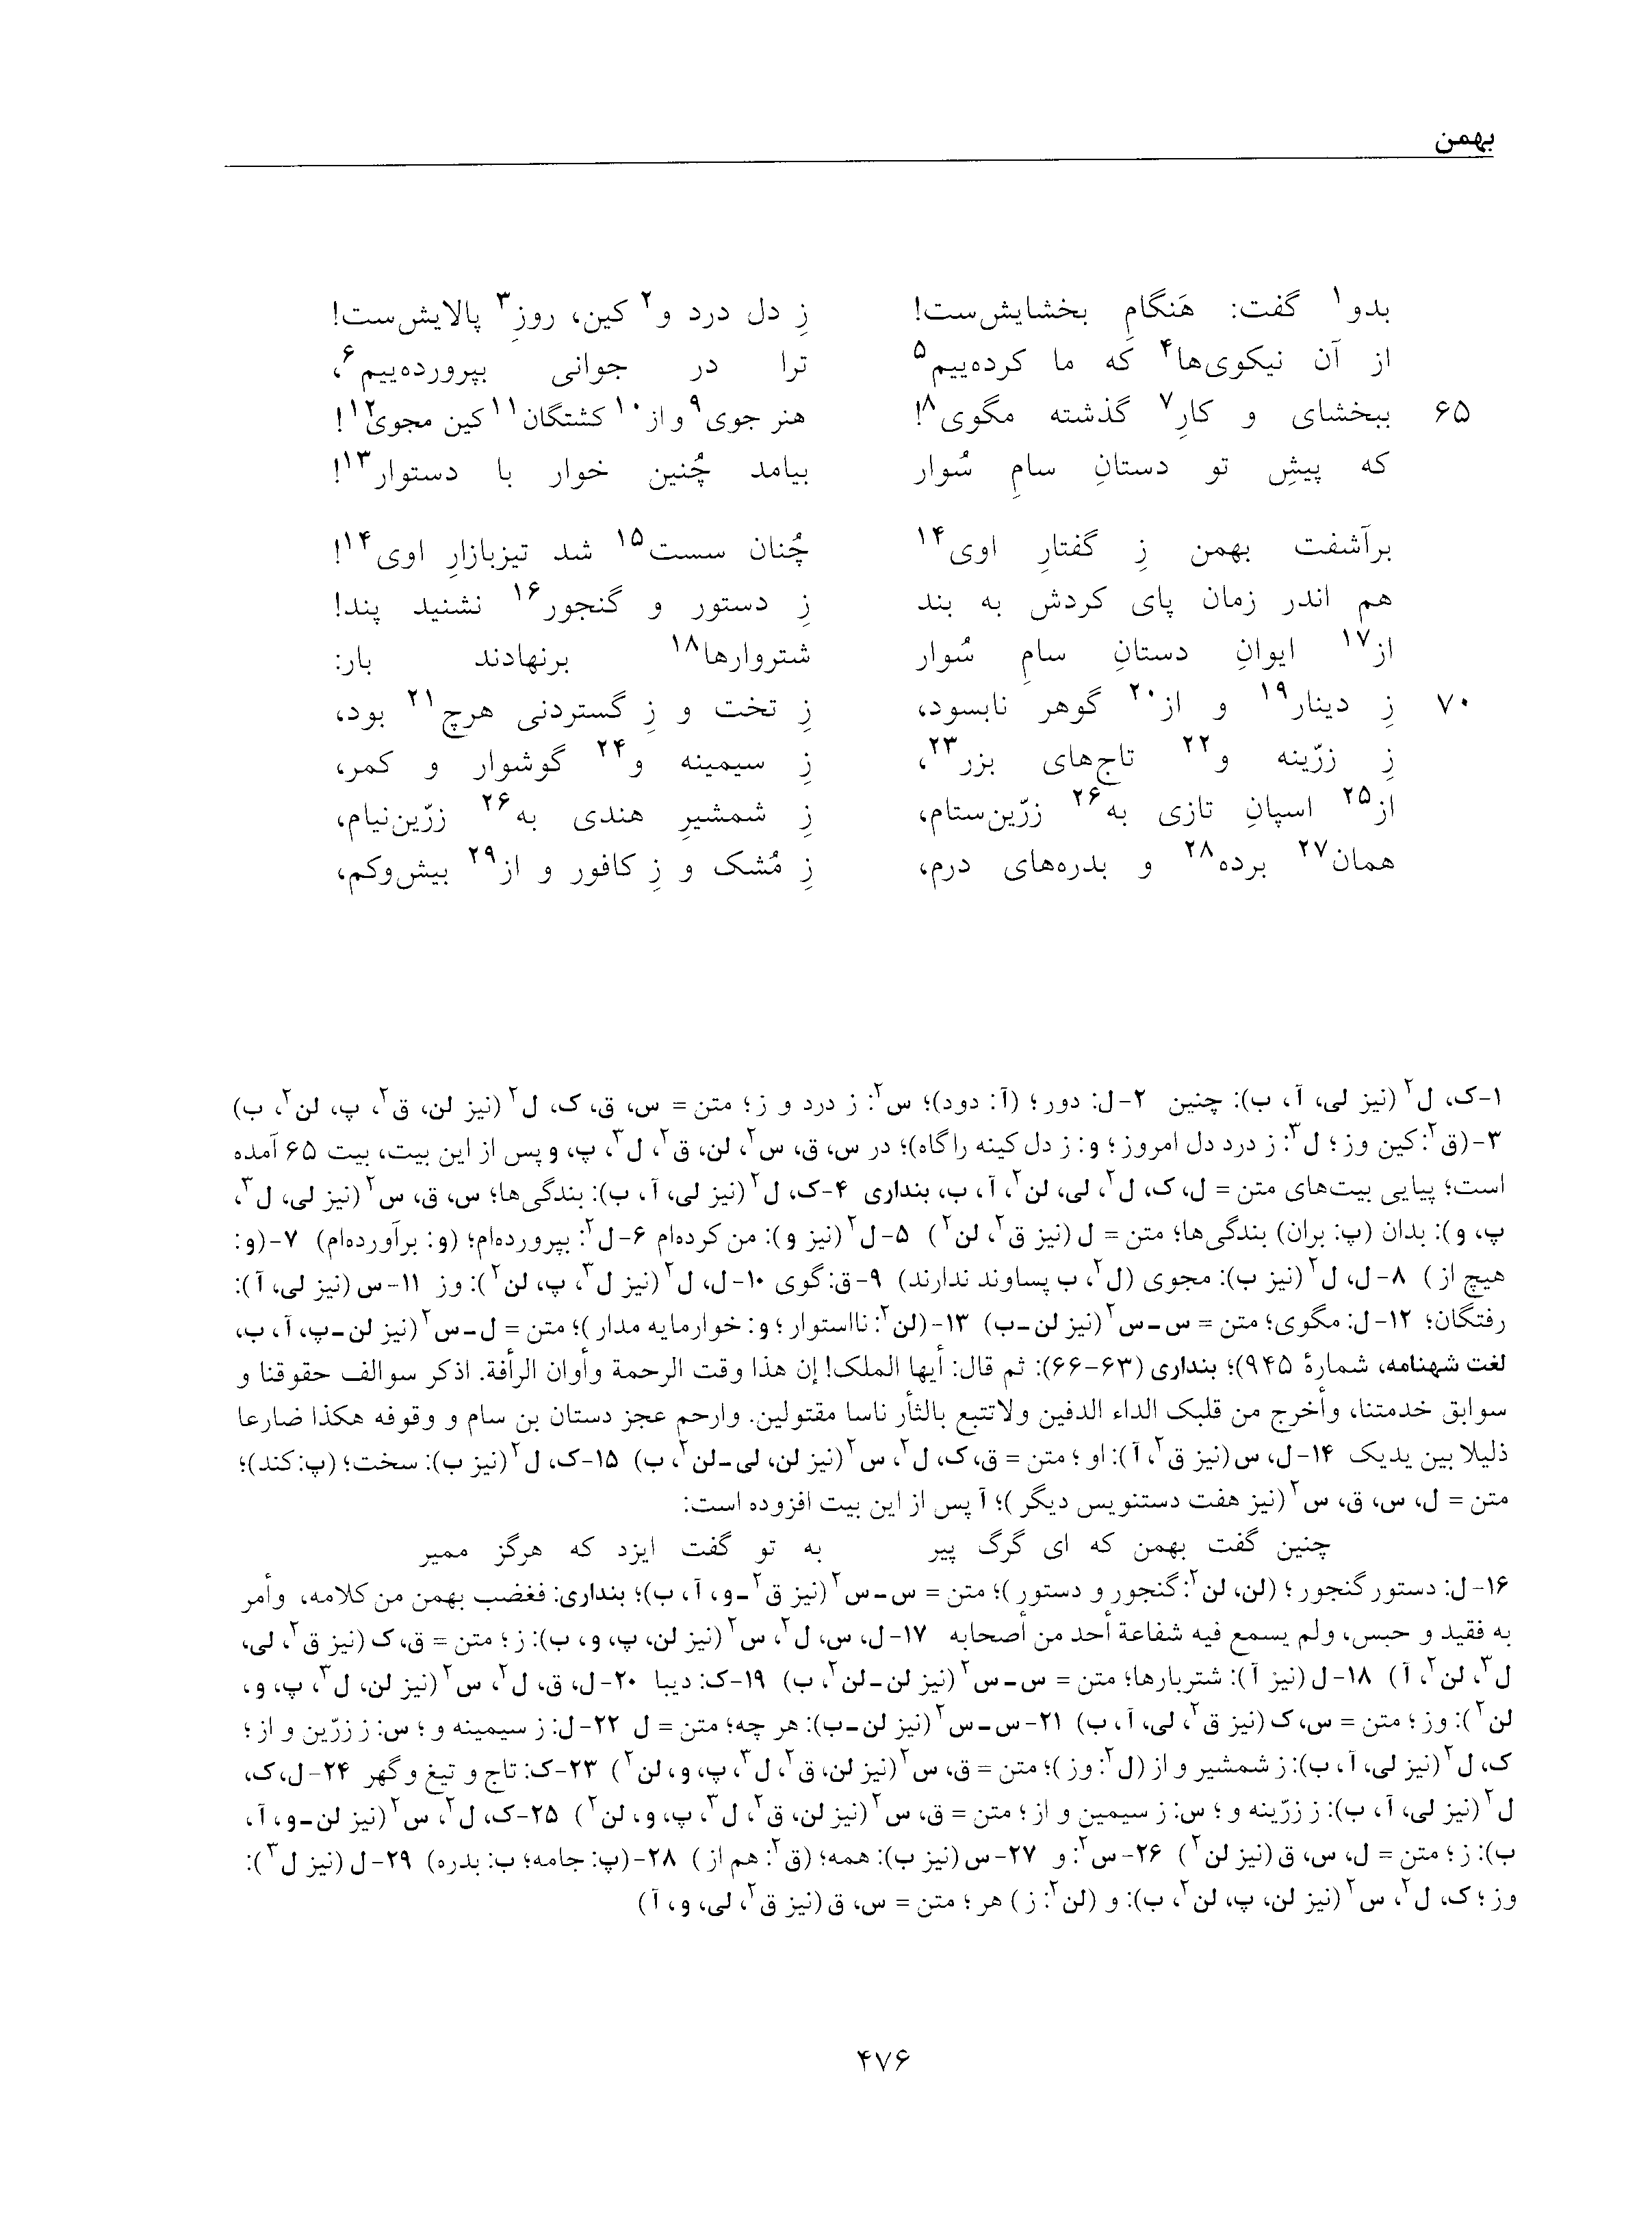 بهمن
بدو۱ گفت: هَنگامِ بخشایش‌ست! زِ دل درد و۲ کین، روزِ۳ پالایش‌ست!
از آن نیکوی‌ها۴ که ما کرده‌ییم۵ ترا در جوانی بپرورده‌ییم۶،
۶۵ ببخشای و کارِ۷ گذشته مگوی۸! هنر جوی۹ و از۱۰ کشتگان۱۱ کین مجوی۱۲!
که پیشِ تو دستانِ سامِ سُوار بیامد چُنین خوار با دستوار۱۳!
برآشفت بهمن زِ گفتارِ اوی۱۴ چُنان سست۱۵ شد تیزبازارِ اوی۱۴!
هم اندر زمان پای کردش به بند زِ دستور و گنجور۱۶ نشنید پند!
از۱۷ ایوانِ دستانِ سامِ سُوار شتروارها۱۸ برنهادند بار:
۷۰ زِ دینار۱۹ و از۲۰ گوهر نابسود، زِ تخت و زِ گستردنی هرچ۲۱ بود،
زِ زرّینه و۲۲ تاج‌های بزر۲۳، زِ سیمینه و۲۴ گوشوار و کمر،
از۲۵ اسپانِ تازی به۲۶ زرّین‌ستام، زِ شمشیرِ هندی به۲۶ زرّین‌نیام،
همان۲۷ برده۲۸ و بدره‌های درم، زِ مُشک و زِ کافور و از۲۹ بیش‌وکم،
۱-ک، ل۲ (نیز لی، آ، ب): چنین ۲-ل: دور؛ (آ: دود)؛ س۲: ز درد و ز؛ متن = س، ق، ک، ل۲ (نیز لن، ق۲، پ، لن۲، ب)
۳-(ق۲: کین وز؛ ل۳: ز درد دل امروز؛ و: ز دل کینه را گاه)؛ در س، ق، س۲، لن، ق۲، ل۳، پ، و پس از این بیت، بیت ۶۵ آمده
است؛ پیایی بیت‌های متن = ل، ک، ل۲، لی، لن۲، آ، ب، بنداری ۴-ک، ل۲ (نیز لی، آ، ب): بندگی‌ها؛ س، ق، س۲ (نیز لی، ل۳،
پ، و): بدان (پ: بران) بندگی‌ها؛ متن = ل (نیز ق۲، لن۲) ۵-ل۲ (نیز و): من کرده‌ام ۶-ل۲: بپرورده‌ام؛ (و: برآورده‌ام) ۷-(و:
هیچ از) ۸-ل، ل۲ (نیز ب): مجوی (ل۲، ب پساوند ندارند) ۹-ق: گوی ۱۰-ل، ل۲ (نیز ل۳، پ، لن۲): وز ۱۱-س (نیز لی، آ):
رفتگان؛ ۱۲-ل: مگوی؛ متن = س-س۲ (نیز لن-ب) ۱۳-(لن۲: نااستوار؛ و: خوارمایه مدار)؛ متن = ل-س۲ (نیز لن-پ، آ، ب،
لغت شهنامه، شمارهٔ ۹۴۵)؛ بنداری (۶۳-۶۶): ثم قال: أیها الملک! إن هذا وقت الرحمة وأوان الرأفة. اذکر سوالف حقوقنا و
سوابق خدمتنا، وأخرج من قلبک الداء الدفین ولاتتبع بالثأر ناسا مقتولین. وارحم عجز دستان بن سام و وقوفه هکذا ضارعا
ذلیلا بین یدیک ۱۴-ل، س (نیز ق۲، آ): او؛ متن = ق، ک، ل۲، س۲ (نیز لن، لی-لن۲، ب) ۱۵-ک، ل۲ (نیز ب): سخت؛ (پ: کند)؛
متن = ل، س، ق، س۲ (نیز هفت دستنویس دیگر)؛ آ پس از این بیت افزوده است:
چنین گفت بهمن که ای گرگ پیر به تو گفت ایزد که هرگز ممیر
۱۶-ل: دستور گنجور؛ (لن، لن۲: گنجور و دستور)؛ متن = س-س۲ (نیز ق۲-و، آ، ب)؛ بنداری: فغضب بهمن من کلامه، وأمر
به فقید و حبس، ولم یسمع فیه شفاعة أحد من أصحابه ۱۷-ل، س، ل۲، س۲ (نیز لن، پ، و، ب): ز؛ متن = ق، ک (نیز ق۲، لی،
ل۳، لن۲، آ) ۱۸-ل (نیز آ): شتربارها؛ متن = س-س۲ (نیز لن-لن۲، ب) ۱۹-ک: دیبا ۲۰-ل، ق، ل۲، س۲ (نیز لن، ل۳، پ، و،
لن۲): وز؛ متن = س، ک (نیز ق۲، لی، آ، ب) ۲۱-س-س۲ (نیز لن-ب): هر چه؛ متن = ل ۲۲-ل: ز سیمینه و؛ س: ز زرّین و از؛
ک، ل۲ (نیز لی، آ، ب): ز شمشیر و از (ل۲: وز)؛ متن = ق، س۲ (نیز لن، ق۲، ل۳، پ، و، لن۲) ۲۳-ک: تاج و تیغ و گهر ۲۴-ل، ک،
ل۲ (نیز لی، آ، ب): ز زرّینه و؛ س: ز سیمین و از؛ متن = ق، س۲ (نیز لن، ق۲، ل۳، پ، و، لن۲) ۲۵-ک، ل۲، س۲ (نیز لن-و، آ،
ب): ز؛ متن = ل، س، ق (نیز لن۲) ۲۶-س۲: و ۲۷-س (نیز ب): همه؛ (ق۲: هم از) ۲۸-(پ: جامه؛ ب: بدره) ۲۹-ل (نیز ل۳):
وز؛ ک، ل۲، س۲ (نیز لن، پ، لن۲، ب): و (لن۲: ز) هر؛ متن = س، ق (نیز ق۲، لی، و، آ)
۴۷۶